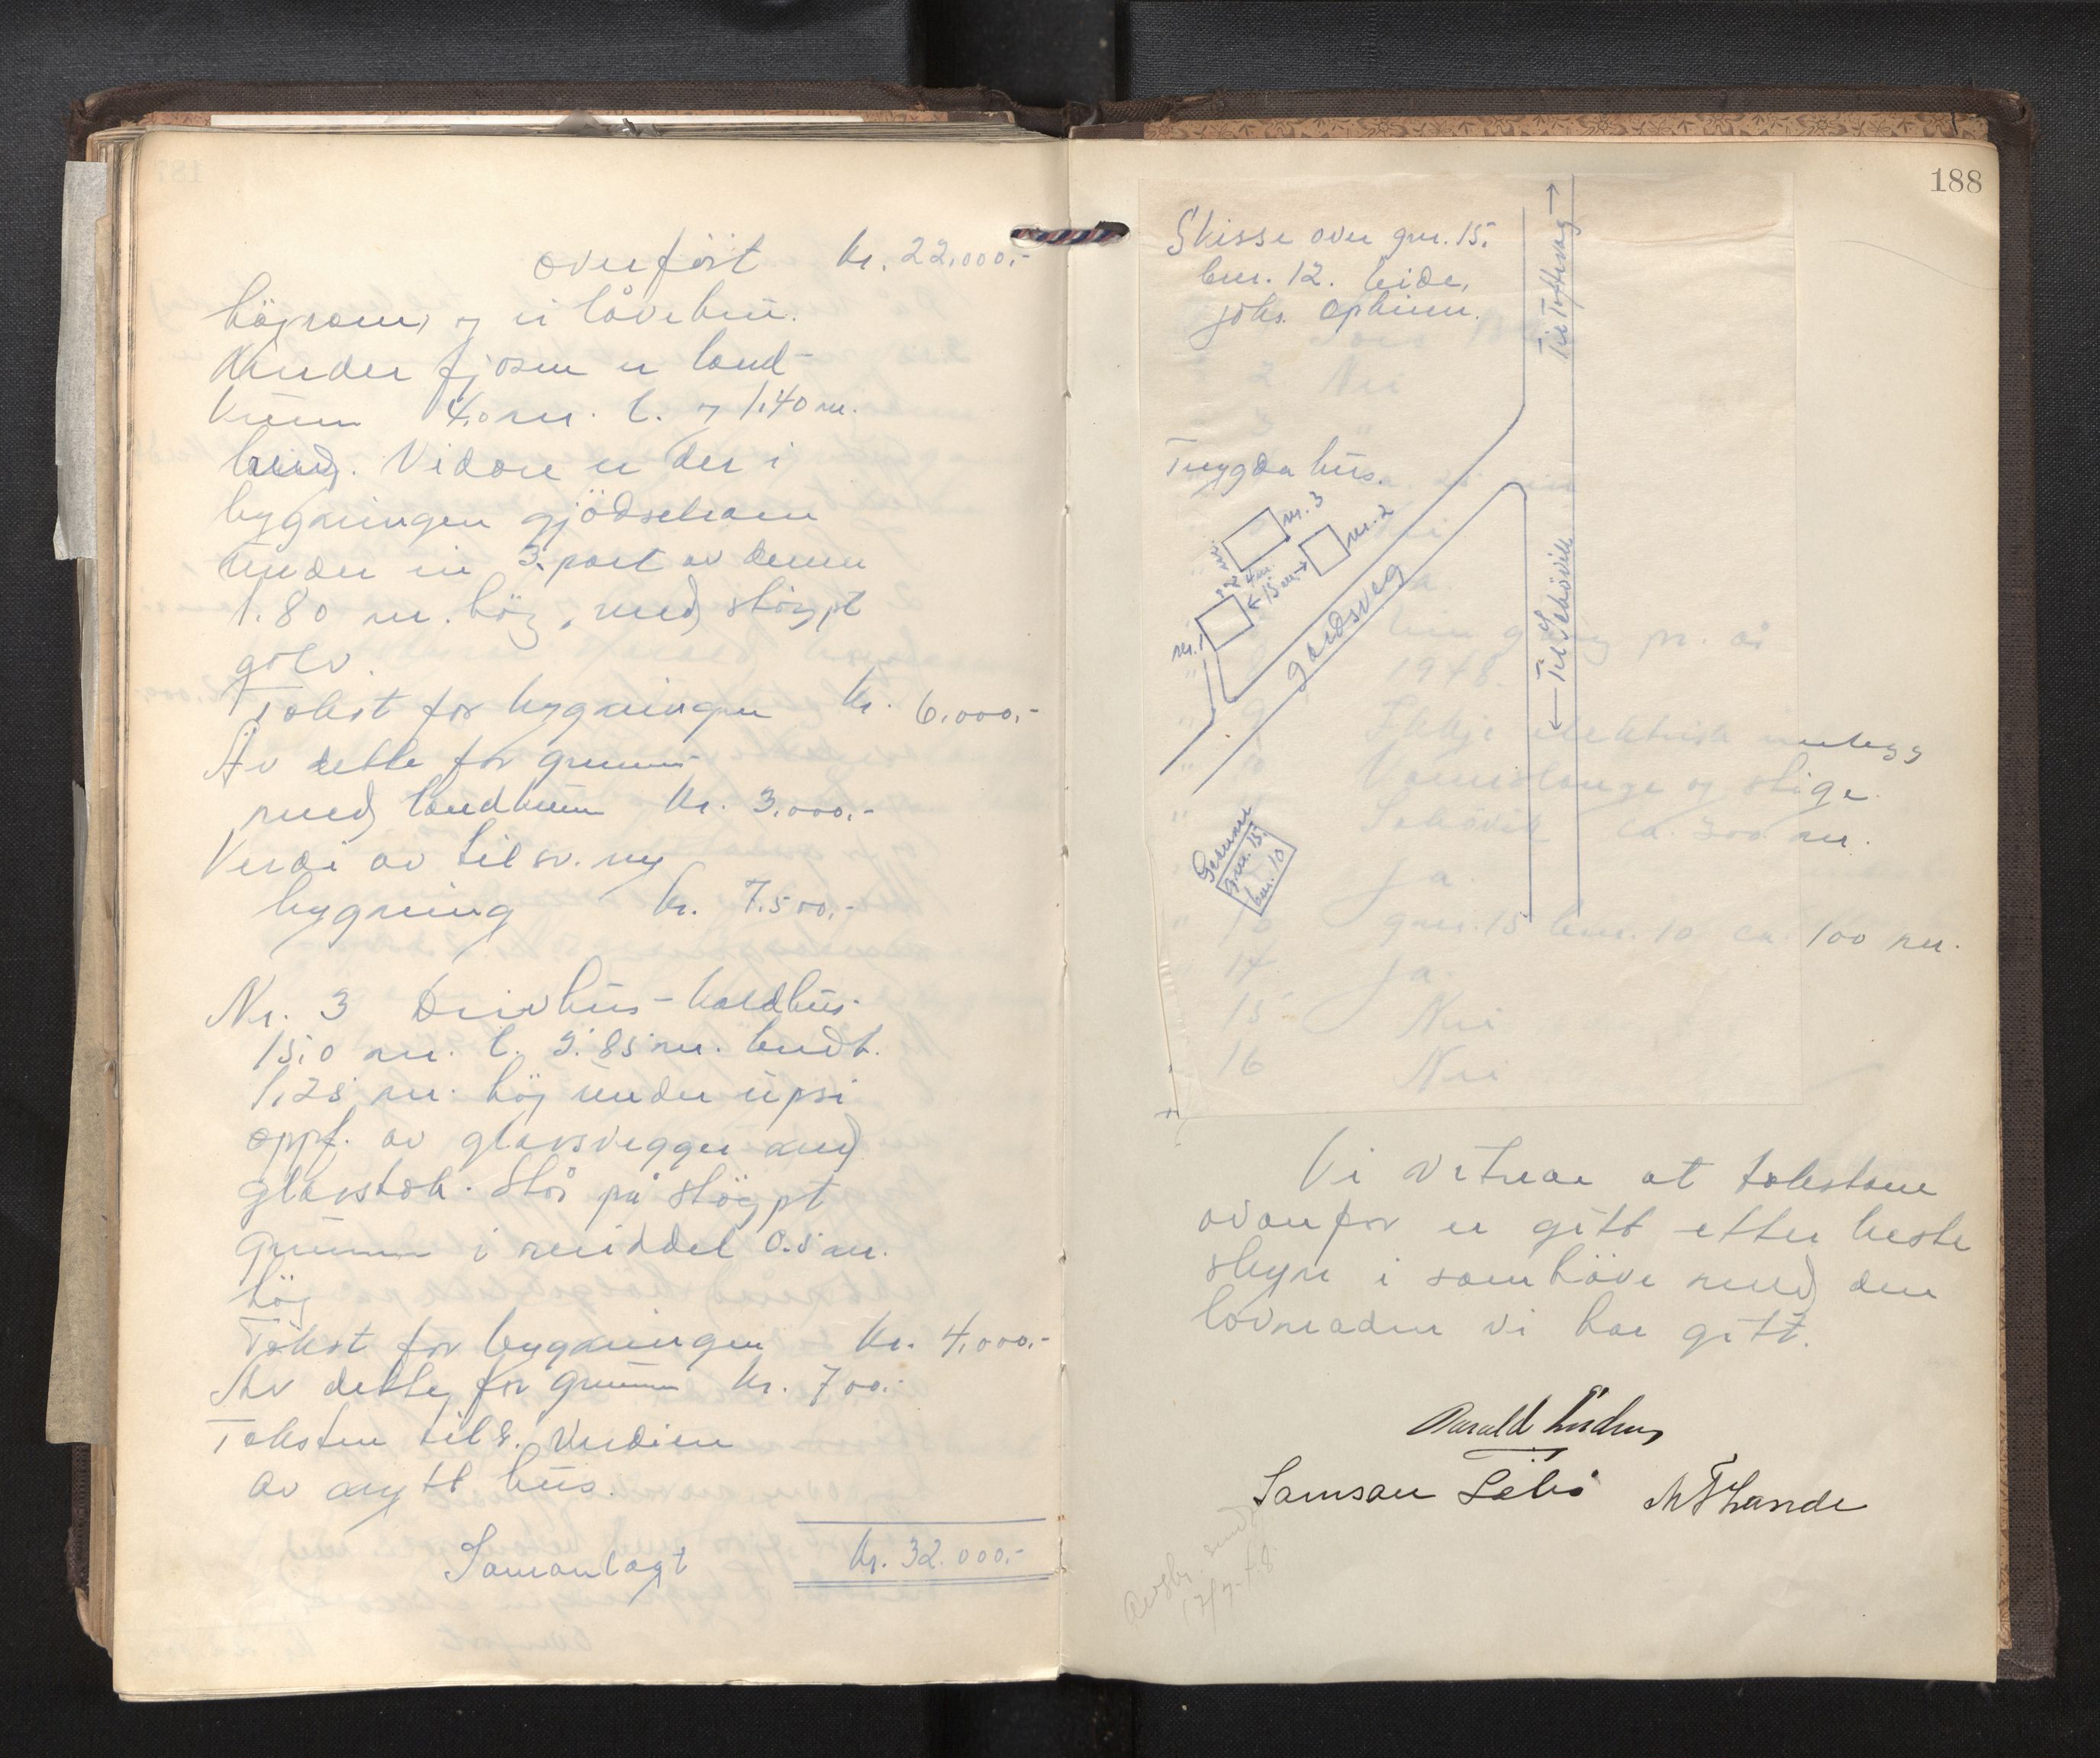 overført kr. 22.000.-
høyrom, og ei låvebru.
Under fjosen er land-
kum 4,0 m. l. og 1,40 m.
breid. Vidare er der i
bygningen gjödselrom
under ein 3. part av denne
1.80 m. høg, med støypt
golv.
Takst for bygningen kr. 6.000.-
Av dette for grunn-
med landkum kr. 3.000.-
Verdi av tilsv. ny
bygning kr. 7.500.-
Nr. 3 Drivhus - kaldhus-
15,0 m. l. 3.85 m. breidt.
1,25 m. høg under upsi
oppf. av glasvegger med
glastak. Står på støypt
grunn i middel 0.5 m.
høg
Takst for bygningen kr. 4.000.-
Av dette for grunn kr. 700.-
Taksten tils. verdien
av nytt hus.
Samanlagt kr. 32.000.-
188
Skisse over gnr. 15.
bnr. 12. Eide,
Johs. Opheim.
Til Tofteveg →
Trygda hus.
nr. 3
nr. 2
4 m.
← 15 m. →
nr. 1
gardsveg
← Til Lekvoll
gnr. 15.
bnr. 10
2 Nei
a.
ein gong pr. år
1948.
9 Ikkje elektrisk innlegg
10 Vannslange og stige
ca. 300 m.
Ja.
13 gnr. 15 bnr. 10 ca. 100 m.
14 Ja.
15 Nei
16 Nei
Vi vitnar at takstane
ovanfor er gitt etter beste
skyn i samhøve med den
lovnaden vi har gitt.
Harald
Samson Lebø M T Lande
Avskr. sendt
17/7-48.